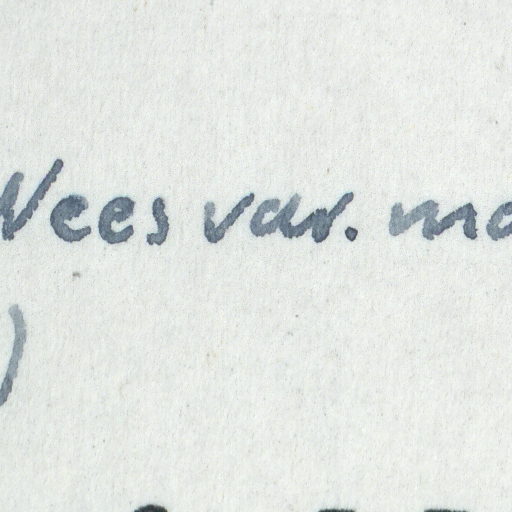 Nees var. ma
)